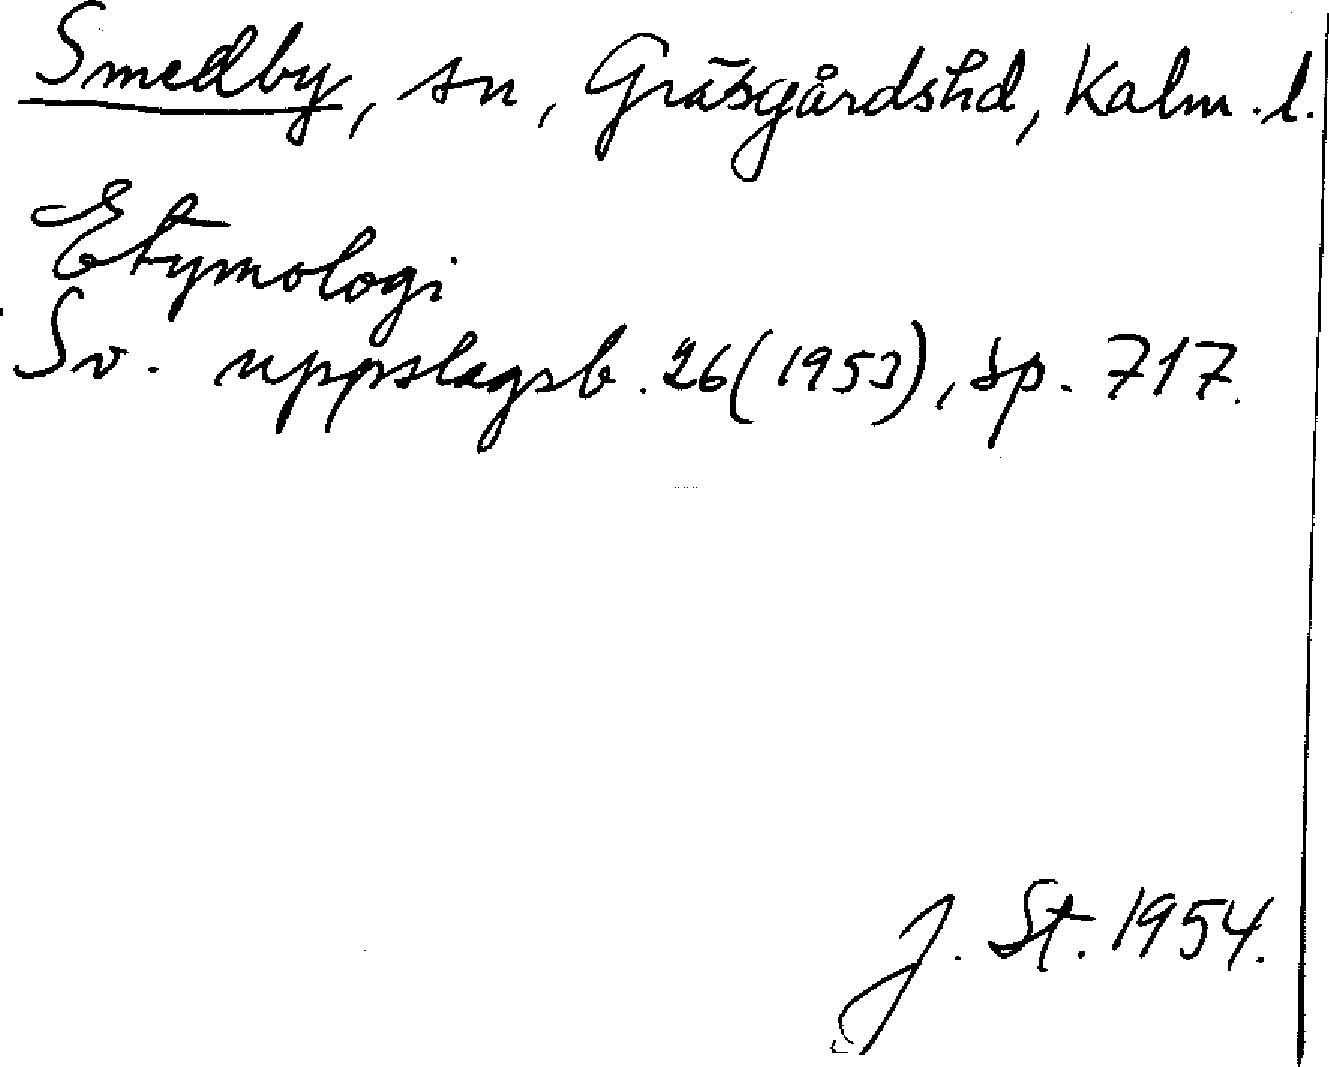 Smedby, sn, Gräsgårdshd, Kalm. l.
Etymologi
Sv. uppslagsb. 26 (1953), sp. 717.
J. St. 1954.